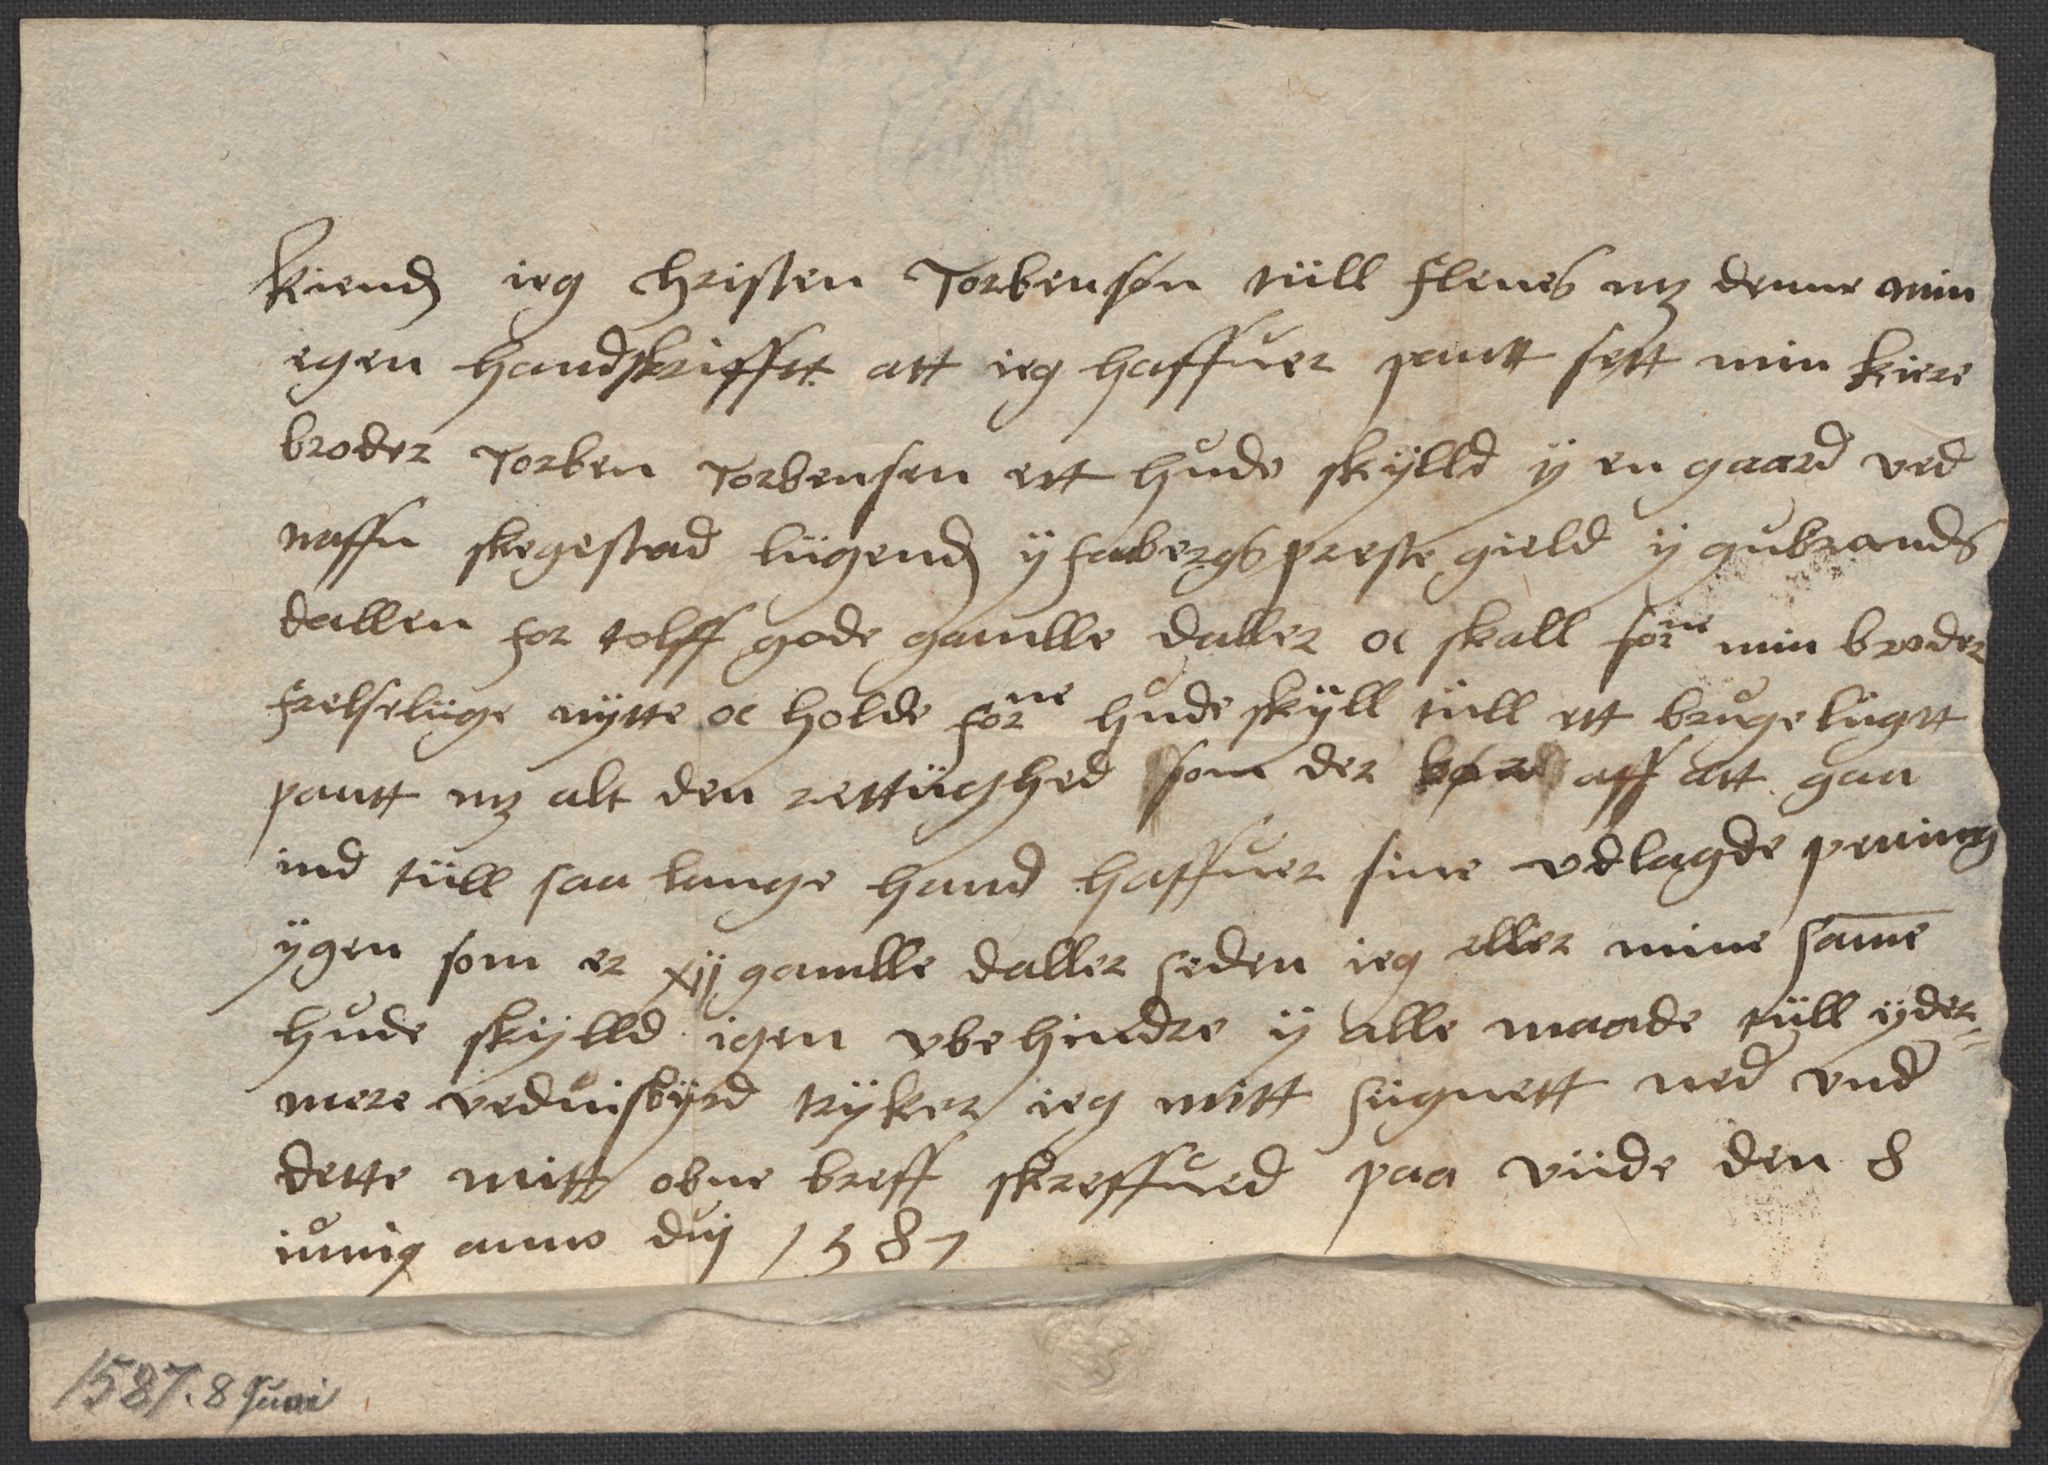 Kiend ieg Christen Torbensøn tüll Flenes mz denne min
egen handskrifftt att ieg haffuer pantt sett min kiere
broder Torben Torbensen ett hude skÿlld ÿ en gaard ved
naffn skegestad lügend ÿ Fabergs preste gield ÿ gubrands
dallen for tolff gode gamlle daller oc skall forne min broder
frelselüge nÿtte oc holde forne hude skÿll tüll ett brugelügtt
pantt mz alt den rettüghed som der bør aff att gaa
ind tüll saa lange hand haffuer sine vdlagde pening
ÿgen som er xij gamlle daller seden ieg eller mine same
hude skÿlld igen vbehindre ÿ alle maade tüll ÿder=
mere veduisbÿrd trÿker ieg mitt sügnett ned vnd
dette mitt obne breff skreffued paa vüde den 8
iunig anno dnj 1587
1587. 8 Juni